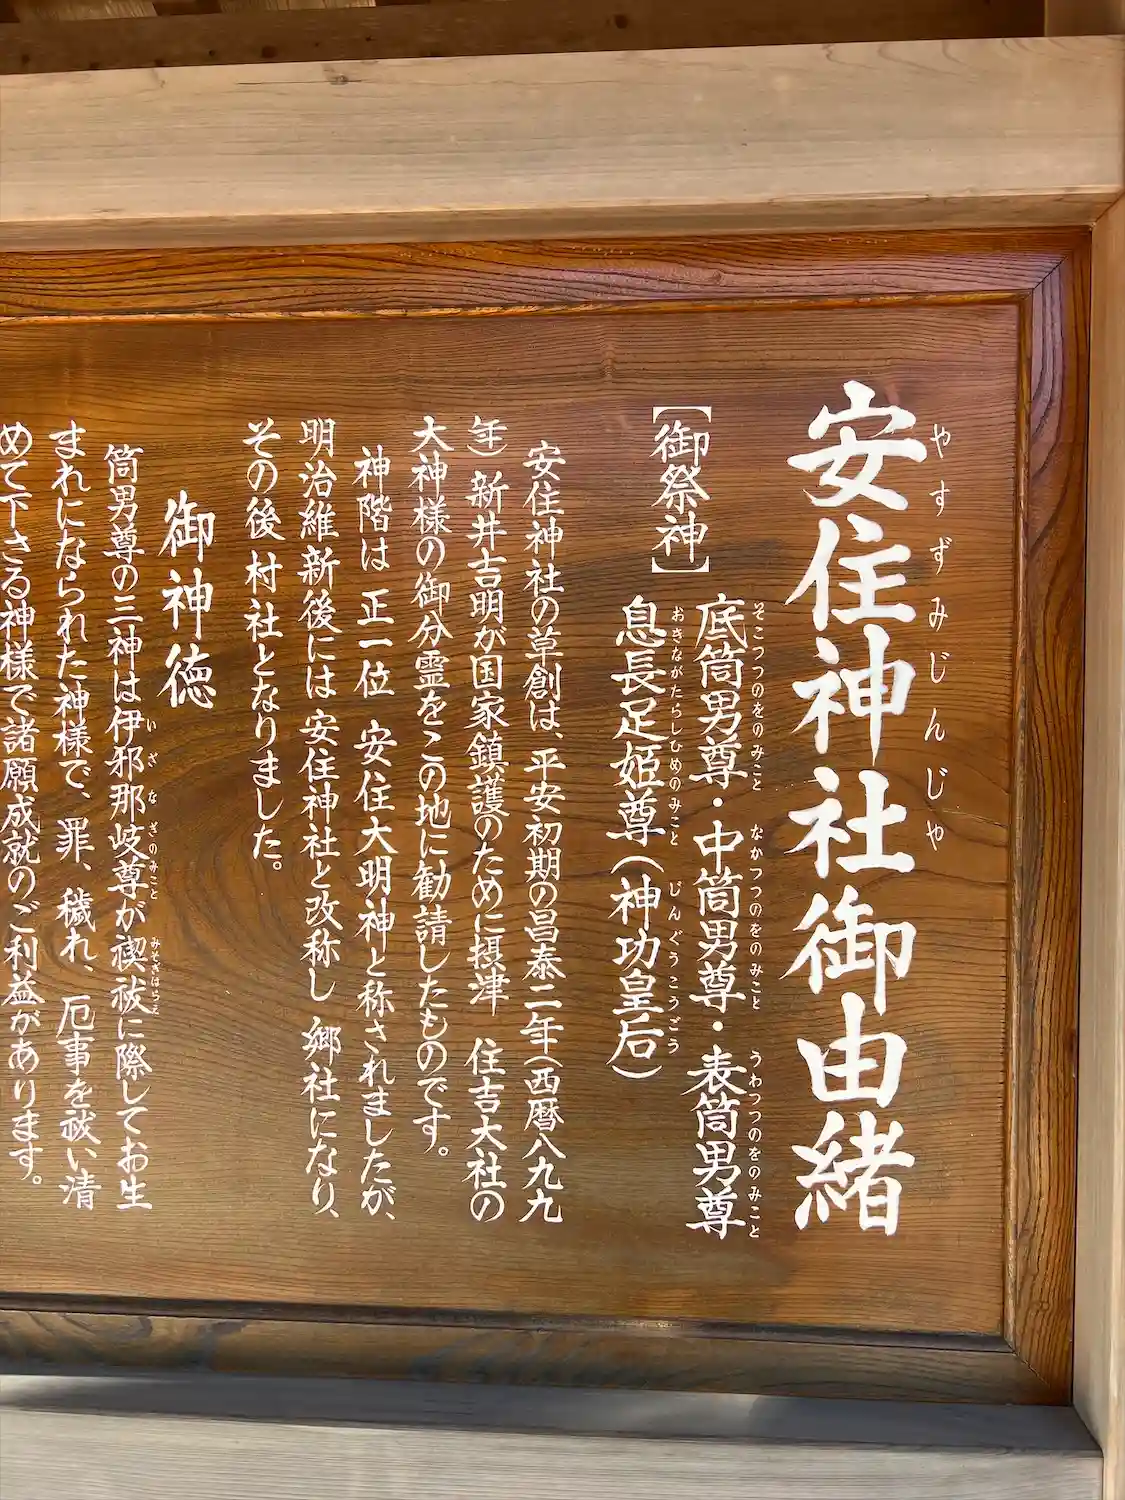 安住神社御由緒
やすずみじんじゃ
【御祭神】
底筒男尊・中筒男尊・表筒男尊
そこつつのをのみこと なかつつのをのみこと うわつつのをのみこと
息長足姫尊(神功皇后)
おきながたらしひめのみこと じんぐうこうごう
安住神社の草創は、平安初期の昌泰二年(西暦八九九
年)新井吉明が国家鎮護のために摂津 住吉大社の
大神様の御分霊をこの地に勧請したものです。
神階は 正一位 安住大明神と称されましたが、
明治維新後には 安住神社と改称し 郷社になり、
その後 村社となりました。
御神徳
筒男尊の三神は伊邪那岐尊が禊祓に際してお生
いざなぎのみこと みそぎはらえ
まれになられた神様で、罪、穢れ、厄事を祓い清
めて下さる神様で諸願成就のご利益があります。